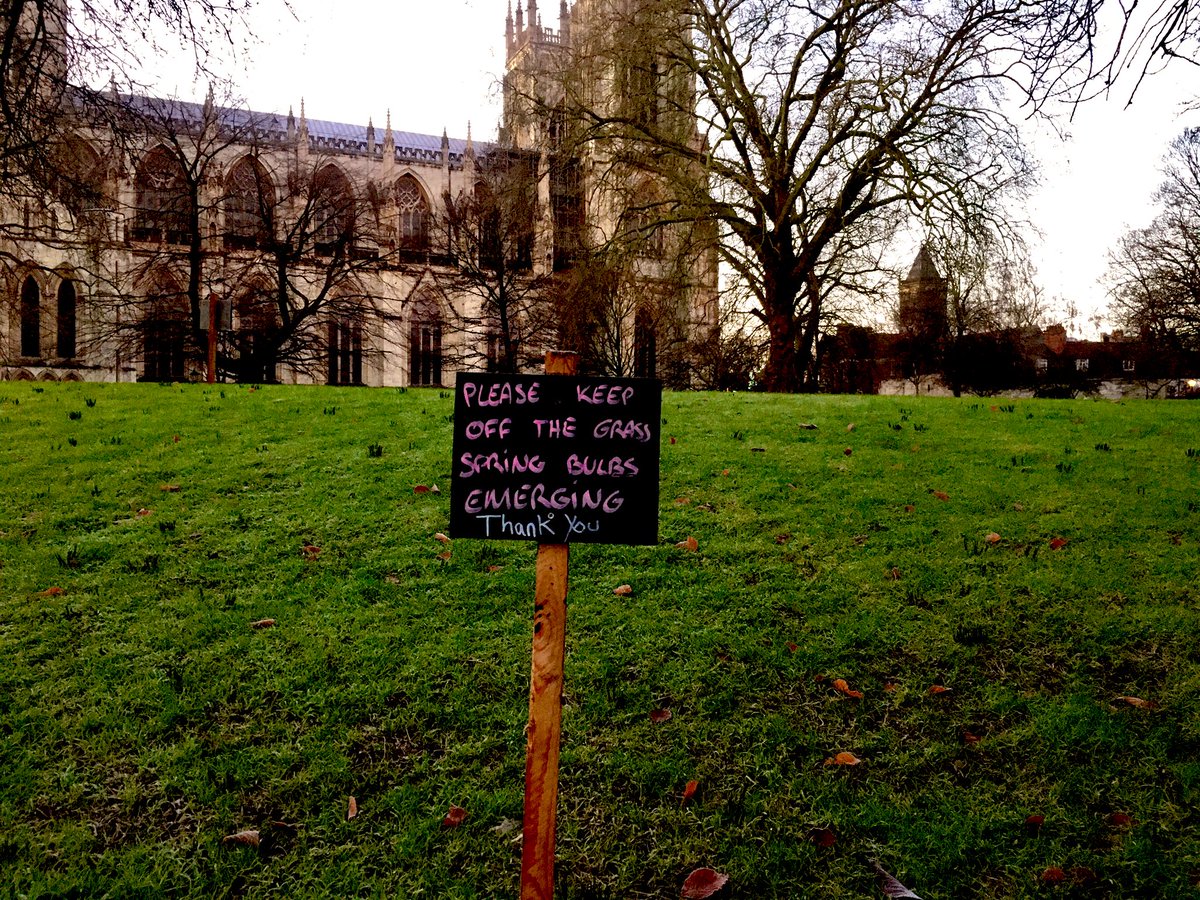 PLEASE KEEP
OFF THE GRASS
SPRING BULBS
EMERGING
Thank You